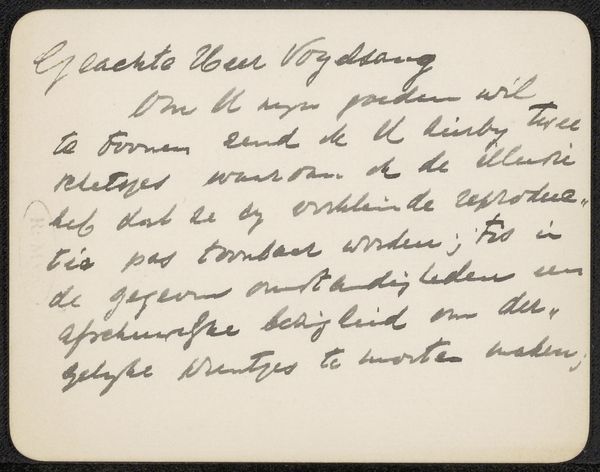 Geachte Heer Vogelsang
Om U mijn goeden wil
te toonen zend ik U hierby twee
schetsjes waarvan ik de illusie
heb dat ze by verkleinde reproduc„
tie pas toonbaar worden; 't is in
de gegeven omstandigheden een
afschuwelijke bezigheid om der„
gelijke prentjes te moeten maken;